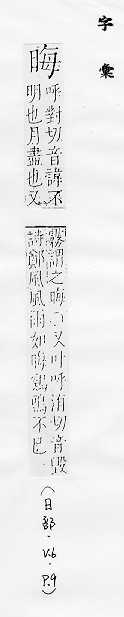 字彙
晦
呼對切音誨不
明也月盡也又
霧謂之晦〇又叶呼洧切音毀
詩鄭風風雨如晦雞鳴不已
(日部·V.6·P.9)